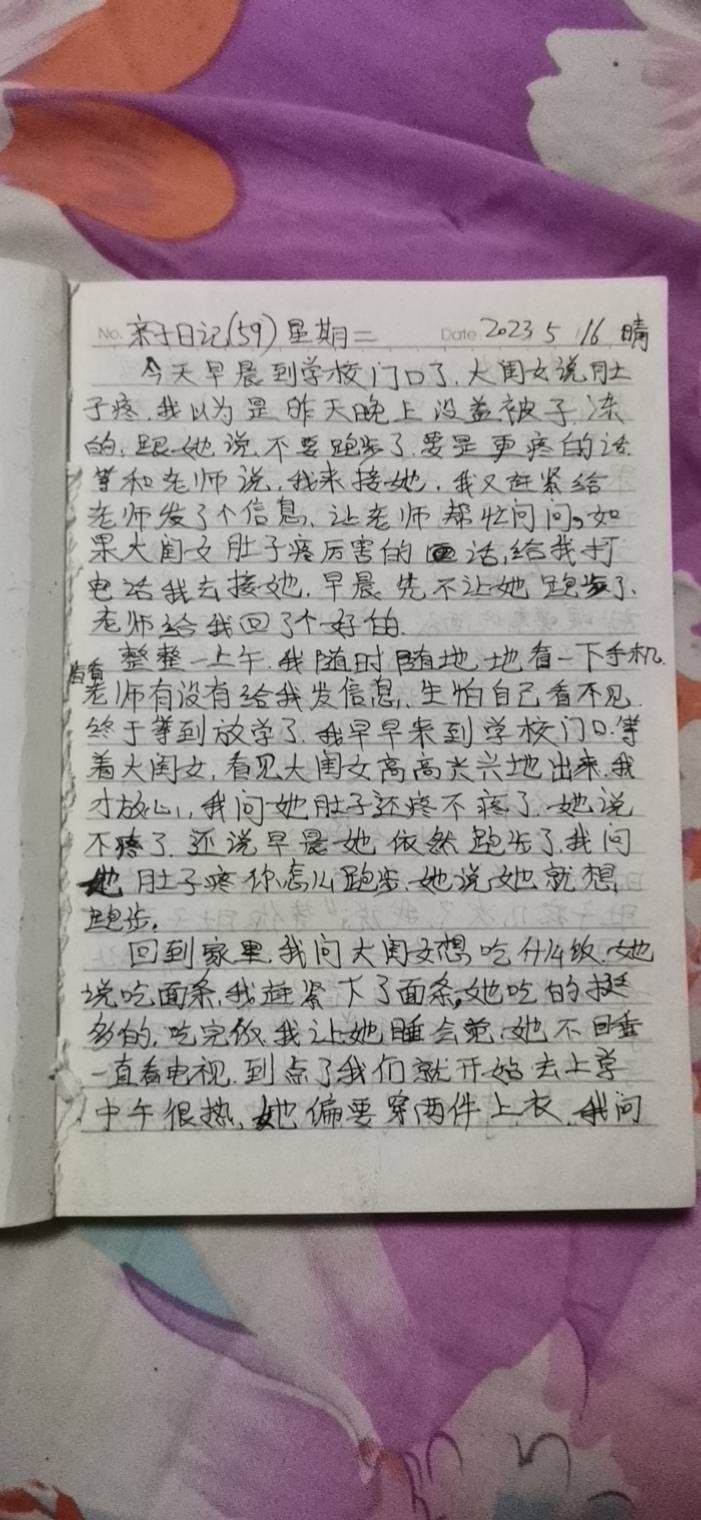 No. 亲子日记(59) 星期二 Date 2023 5 16 晴
今天早晨到学校门口了，大闺女说肚
子疼，我以为是昨天晚上没盖被子，冻
的，跟她说，不要跑步了，要是更疼的话
等和老师说，我来接她，我又赶紧给
老师发了个信息，让老师帮忙问问，如
果大闺女肚子疼厉害的话，给我打
电话我去接她，早晨先不让她跑步了，
老师给我回了个好的。
整整一上午，我随时随地地看一下手机，
看看老师有没有给我发信息，生怕自己看不见
终于等到放学了，我早早来到学校门口，等
着大闺女，看见大闺女高高兴兴地出来，我
才放心，我问她肚子还疼不疼了，她说
不疼了，还说早晨她依然跑步了，我问
她肚子疼你怎么跑步，她说她就想
跑步。
回到家里，我问大闺女想吃什么饭，她
说吃面条，我赶紧下了面条，她吃的挺
多的，吃完饭，我让她睡会觉，她不睡
一直看电视，到点了我们就开始去上学
中午很热，她偏要穿两件上衣，我问